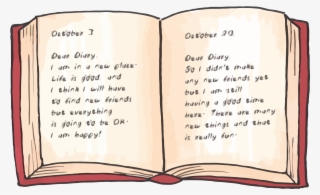 October 3
Dear Diary
I am in a new place.
Life is good and
I think I will have
to find new friends
but everything
is going to be OK.
I am happy!
October 20
Dear Diary
So I didn't make
any new friends yet
but I am still
having a good time
here. There are many
new things and that
is really fun.